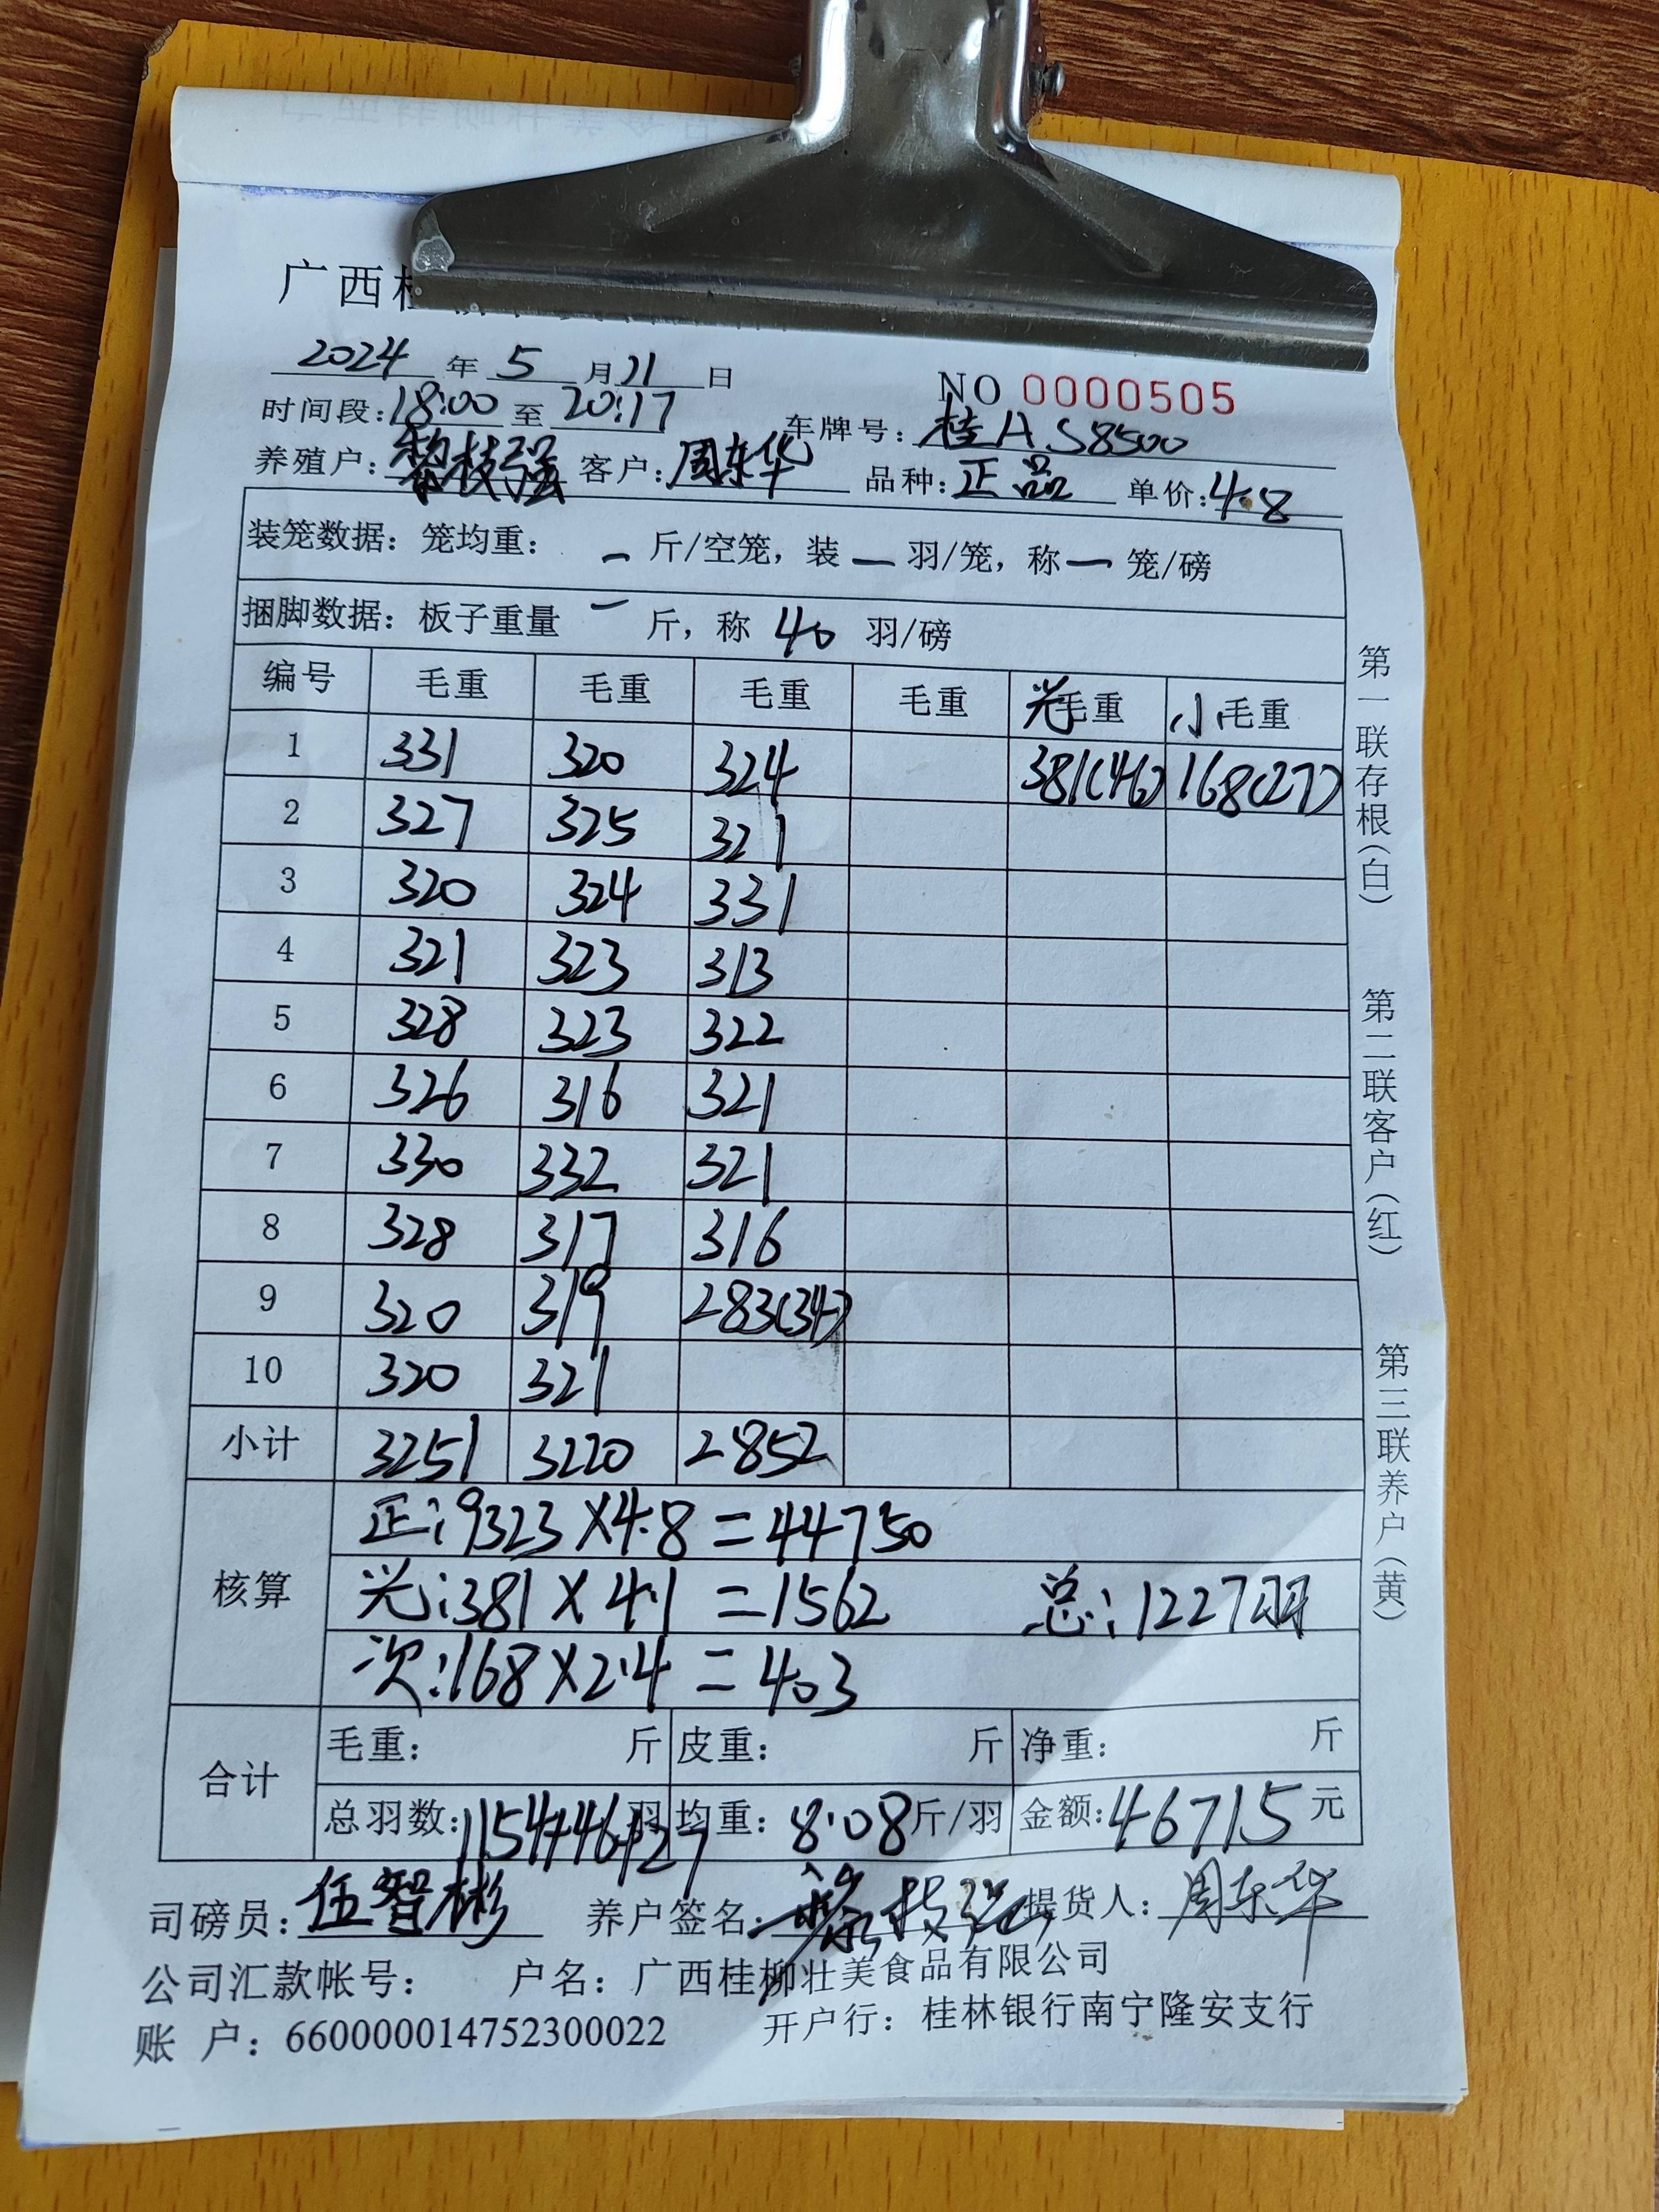 广西桂
2024 年 5 月 11 日
NO 0000505
时间段:18:00 至 20:17 车牌号:桂A S8500
养殖户:黎枝强 客户:周东华 品种:正品 单价:4.8
装笼数据:笼均重: - 斤/空笼,装 - 羽/笼,称 - 笼/磅
捆脚数据:板子重量 - 斤,称 40 羽/磅
编号 毛重 毛重 毛重 毛重 光毛重 小毛重
1 331 320 324 381(46) 168(27)
2 327 325 321
3 320 324 331
4 321 323 313
5 328 323 322
6 326 316 321
7 330 332 321
8 328 317 316
9 320 319 283(34)
10 320 321
小计 3251 3220 2852
核算
正:9323×4.8=44750
光:381×4.1=1562 总:1227羽
次:168×2.4=403
合计
毛重: 斤 皮重: 斤 净重: 斤
总羽数:1154+46+27羽 均重:8.08斤/羽 金额:46715元
司磅员:伍智彬 养户签名:黎枝强 提货人:周东华
公司汇款帐号: 户名:广西桂柳壮美食品有限公司
账 户:660000014752300022 开户行:桂林银行南宁隆安支行
第一联存根(白)
第二联客户(红)
第三联养户(黄)